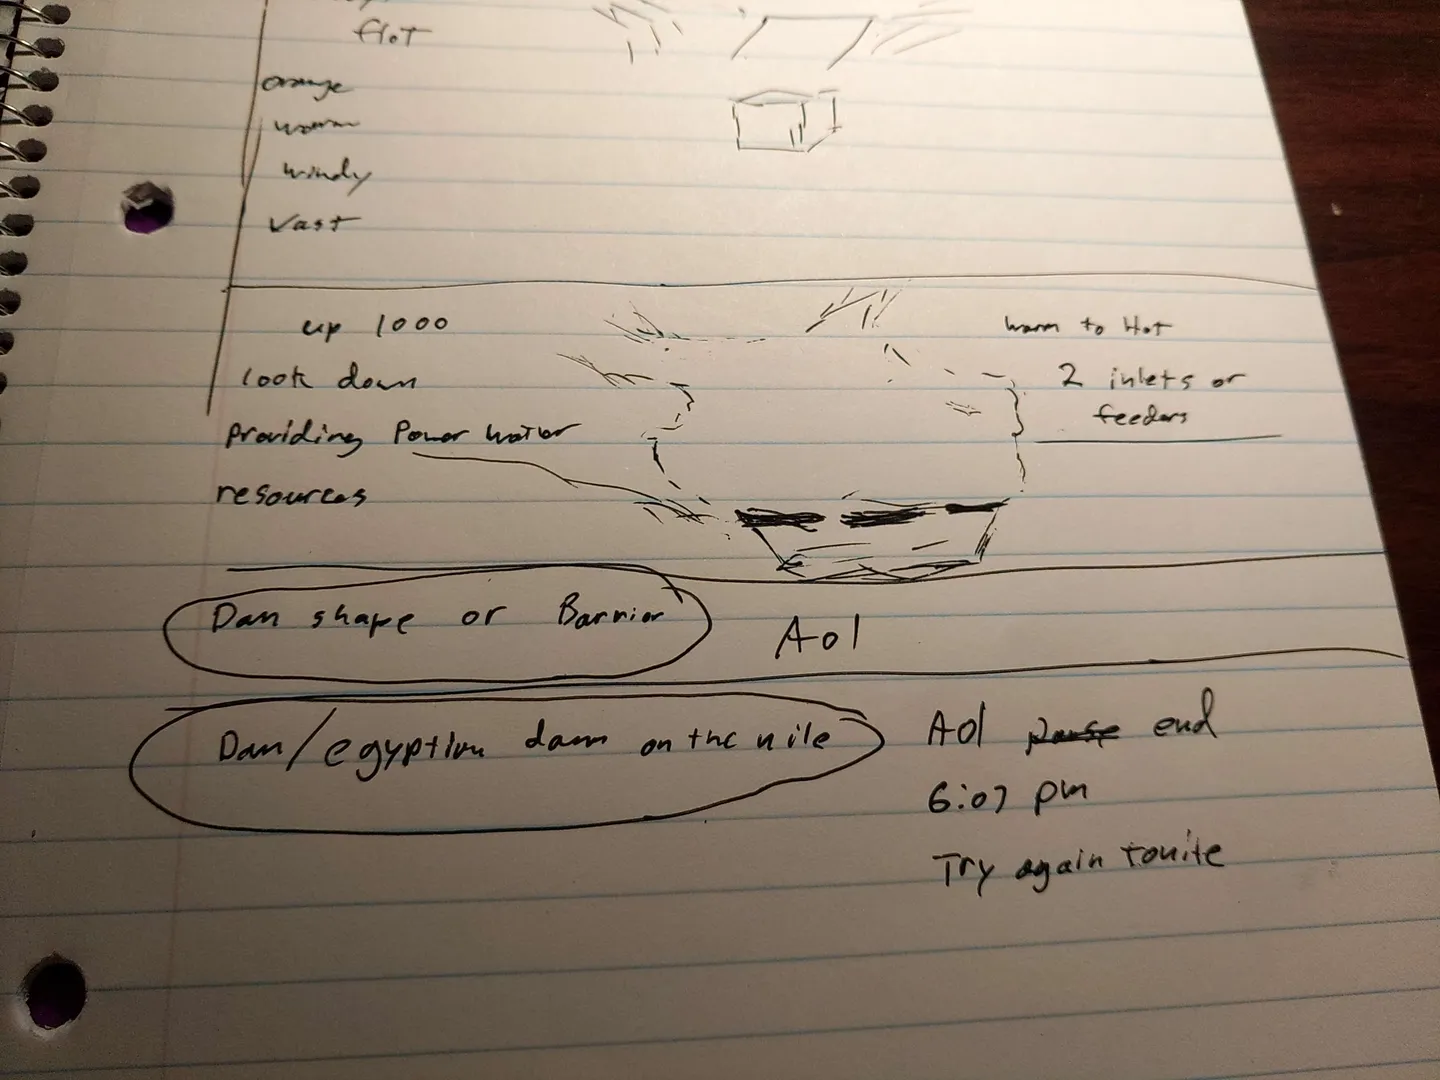 flat
orange
warm
windy
Vast
up 1000
look down
providing Power water
resources
warm to Hot
2 inlets or
feeders
Dam shape or Barrier
Aol
Dam/egyptian dam on the nile
AOl pause end
6:07 pm
Try again tonite